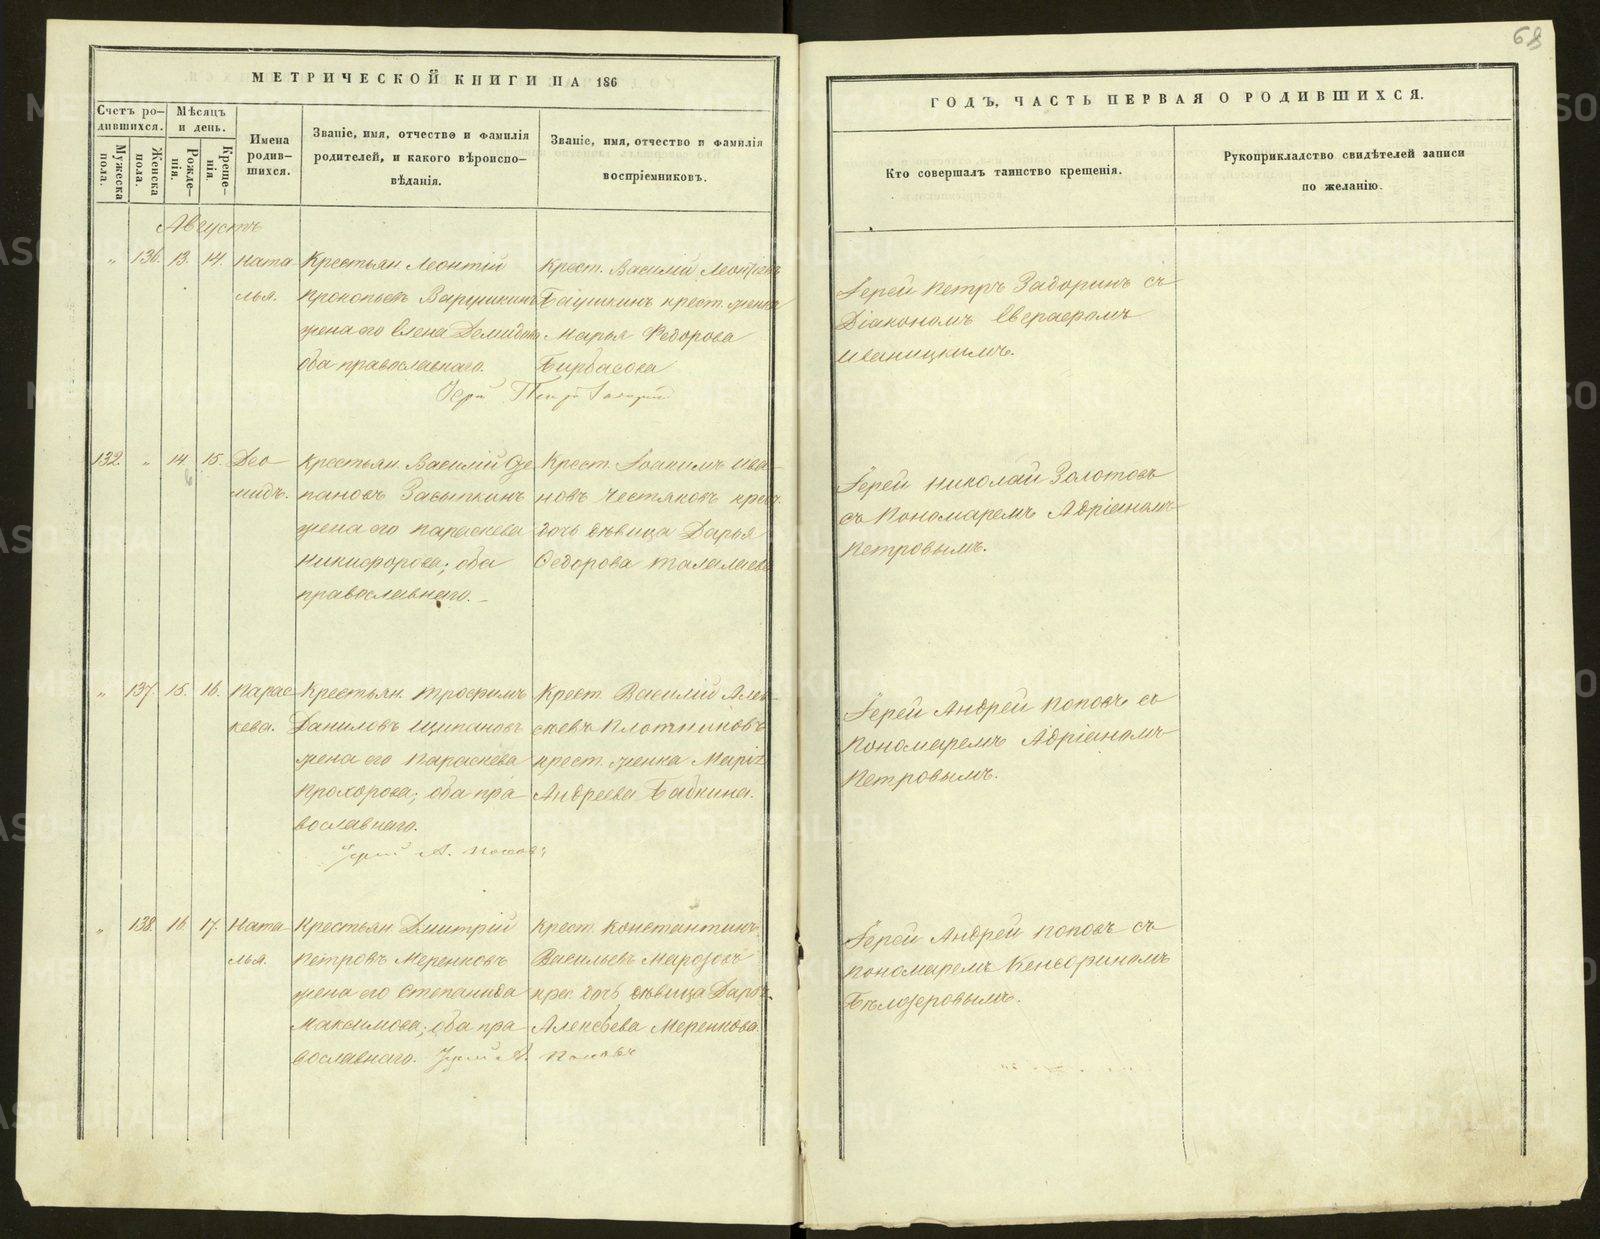 68
МЕТРИЧЕСКОЙ КНИГИ НА 186
ГОДЪ, ЧАСТЬ ПЕРВАЯ О РОДИВШИХСЯ.
Счетъ ро-
дившихся.
Мужеска
пола.
Женска
пола.
Мѣсяцъ
и день.
Рожде-
нія.
Креще-
нія.
Имена
родив-
шихся.
Званіе, имя, отчество и фамилія
родителей, и какого вѣроиспо-
вѣданія.
Званіе, имя, отчество и фамилія
воспріемниковъ.
Кто совершалъ таинство крещенія.
Рукоприкладство свидѣтелей записи
по желанію.
Августъ
" 136. 13. 14.
Ната
лья.
Крестьян. Леонтій
Прокопьевъ
жена его Елена Демидова
оба православнаго.
Крест. Василій Леонтьевъ
крест. женка
Марья Федорова
Бирбасова
Іерей Петръ Задоринъ съ
Діакономъ Евграфомъ
Иваницкимъ.
Іерей Петръ Задорин
132. " 14. 15.
Део
мидъ.
Крестьян. Василій Сте
пановъ Засыпкинъ
жена его Параскева
Никифорова; оба
православнаго.
Крест. Іоакимъ Ива-
новъ Честяковъ крест.
дочь дѣвица Дарья
Федорова Талалаева
Іерей Николай Золотовъ
съ Пономаремъ Адріаномъ
Петровымъ.
" 137. 15. 16.
Парас
кева.
Крестьян. Трофимъ
Даниловъ Щипановъ
жена его Параскева
Прохорова; оба пра
вославнаго.
Крест. Василій Алек-
сѣевъ Плотниковъ
крест. женка Марія
Андреева Бабкина.
Іерей Андрей Поповъ съ
Пономаремъ Адріаномъ
Петровымъ.
Іерей А. Поповъ
" 138. 16. 17.
Ната
лья.
Крестьян. Дмитрій
Петровъ Меренковъ
жена его Степанида
Максимова; оба пра
вославнаго.
Крест. Константинъ
Васильевъ Марозовъ
крес. дочь дѣвица Дарья
Алексѣева Меренкова.
Іерей Андрей Поповъ съ
пономаремъ Кенсориномъ
Бѣлозеровымъ.
Іерей А. Поповъ
METRIKI.GASO-URAL.RU